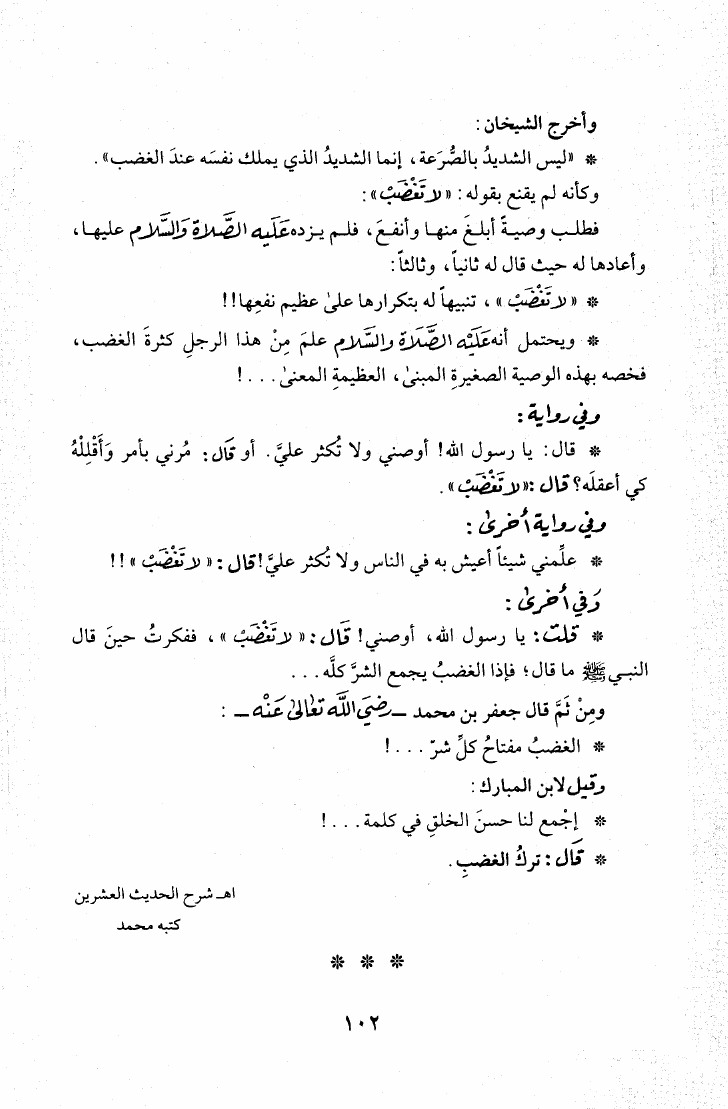 وأخرج الشيخان :
* «ليس الشديدُ بالصُّرَعة، إنما الشديدُ الذي يملك نفسَه عندَ الغضب» .
وكأنه لم يقنع بقوله : « لَا تَغْضَبْ» :
فطلب وصيةً أبلغَ منها وأنفعَ، فلم يزده عَلَيْه الصَّلاة وَالسَّلام عليها،
وأعادها له حيث قال له ثانياً، وثالثاً :
* « لَا تَغْضَبْ » ، تنبيهاً له بتكرارها علىٰ عظيم نفعِها !!
* ويحتمل أنه عَلَيْه الصَّلَاة والسَّلَام علمَ مِنْ هذا الرجلِ كثرةَ الغضب،
فخصه بهذه الوصية الصغيرةِ المبنىٰ، العظيمةِ المعنىٰ . . . !
وفي رواية :
* قال: يا رسول الله! أوصني ولا تُكثر عليَّ. أو قَال: مُرني بأمر وَأَقْلِلْهُ
كي أعقلَه؟ قال : «لا تَغْضَبْ» .
وفي رواية أُخرىٰ :
* علِّمني شيئاً أعيش به في الناس ولا تُكثر عليَّ! قال : « لا تَغْضَبْ » !!
وَفي أُخرىٰ :
* قلتُ: يا رسول الله، أوصني! قَال: « لا تَغْضَبْ » ، ففكرتُ حينَ قال
النبي ﷺ ما قال؛ فإذا الغضبُ يجمع الشرَّ كلَّه . . .
ومِنْ ثَمَّ قال جعفر بن محمد ــ رضيَ اللَّه تعَالىٰ عَنْه ــ :
* الغضبُ مفتاحُ كلِّ شرّ . . . !
وقيل لابن المبارك :
* إجْمع لنا حسنَ الخلقِ في كلمة . . . !
* قَال : تركُ الغضبِ .
اهـ شرح الحديث العشرين
كتبه محمد
* * *
١٠٢